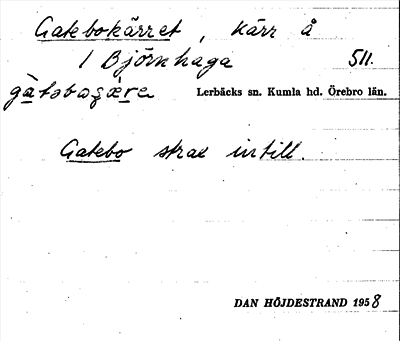 Gatebokärret, kärr å
1 Björnhaga 511.
Lerbäcks sn. Kumla hd. Örebro län.
Gatebo strax intill.
DAN HÖJDESTRAND 1958